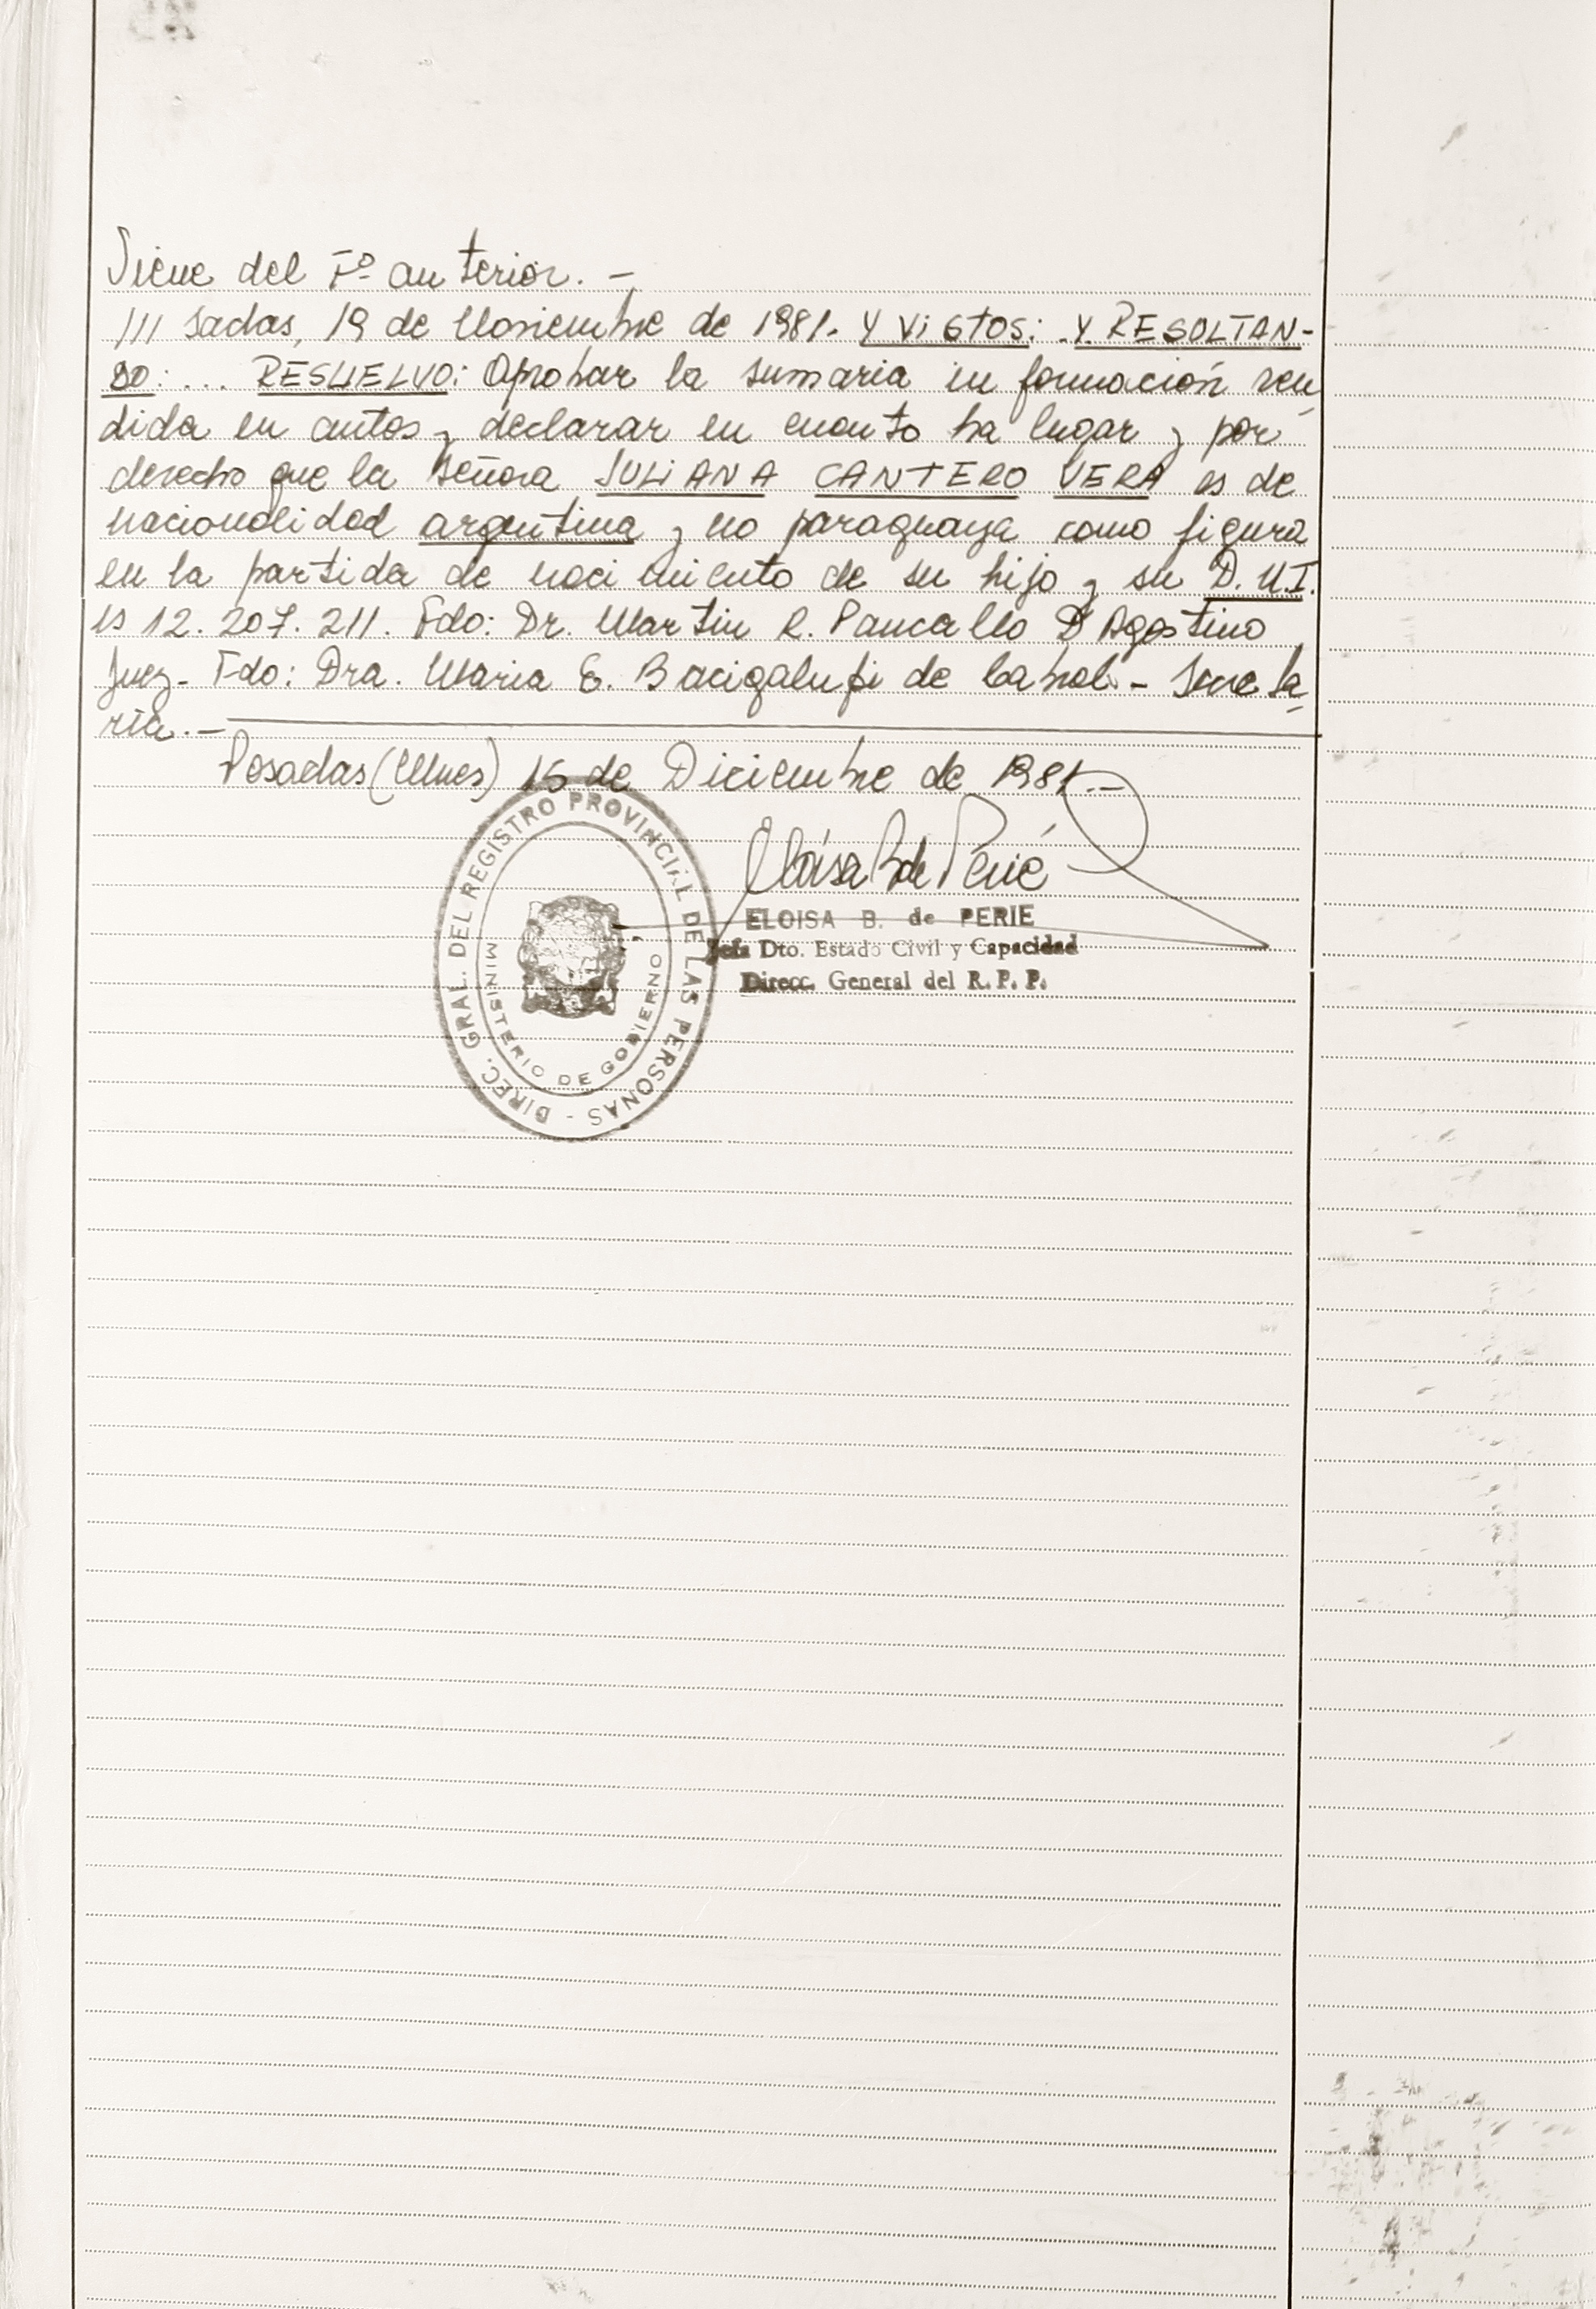 Viene del Fº anterior. -
/// sadas, 19 de Noviembre de 1981. Y ViSTOS: .Y. RESULTAN-
DO: ... RESUELVO: Aprobar la sumaria información ren
dida en autos y declarar en cuanto ha lugar y por
derecho que la señora JULiANA CANTERO VERA es de
nacionalidad argentina y no paraguaya como figura
en la partida de nacimiento de su hijo y su D.N.I.
es 12.207.211. Fdo: Dr. Martin R. Pancallo D'Agostino
Juez- Fdo: Dra. Maria E. Bacigalupi de Cabral. - Secreta-
ria.-
Posadas (Mnes) 15 de Diciembre de 1981.-
Eloisa B de Perié
ELOISA B. de PERIE
Jefa Dto. Estado Civil y Capacidad
Direcc. General del R. P. P.
DIREC. GRAL. DEL REGISTRO PROVINCIAL DE LAS PERSONAS -
MINISTERIO DE GOBIERNO